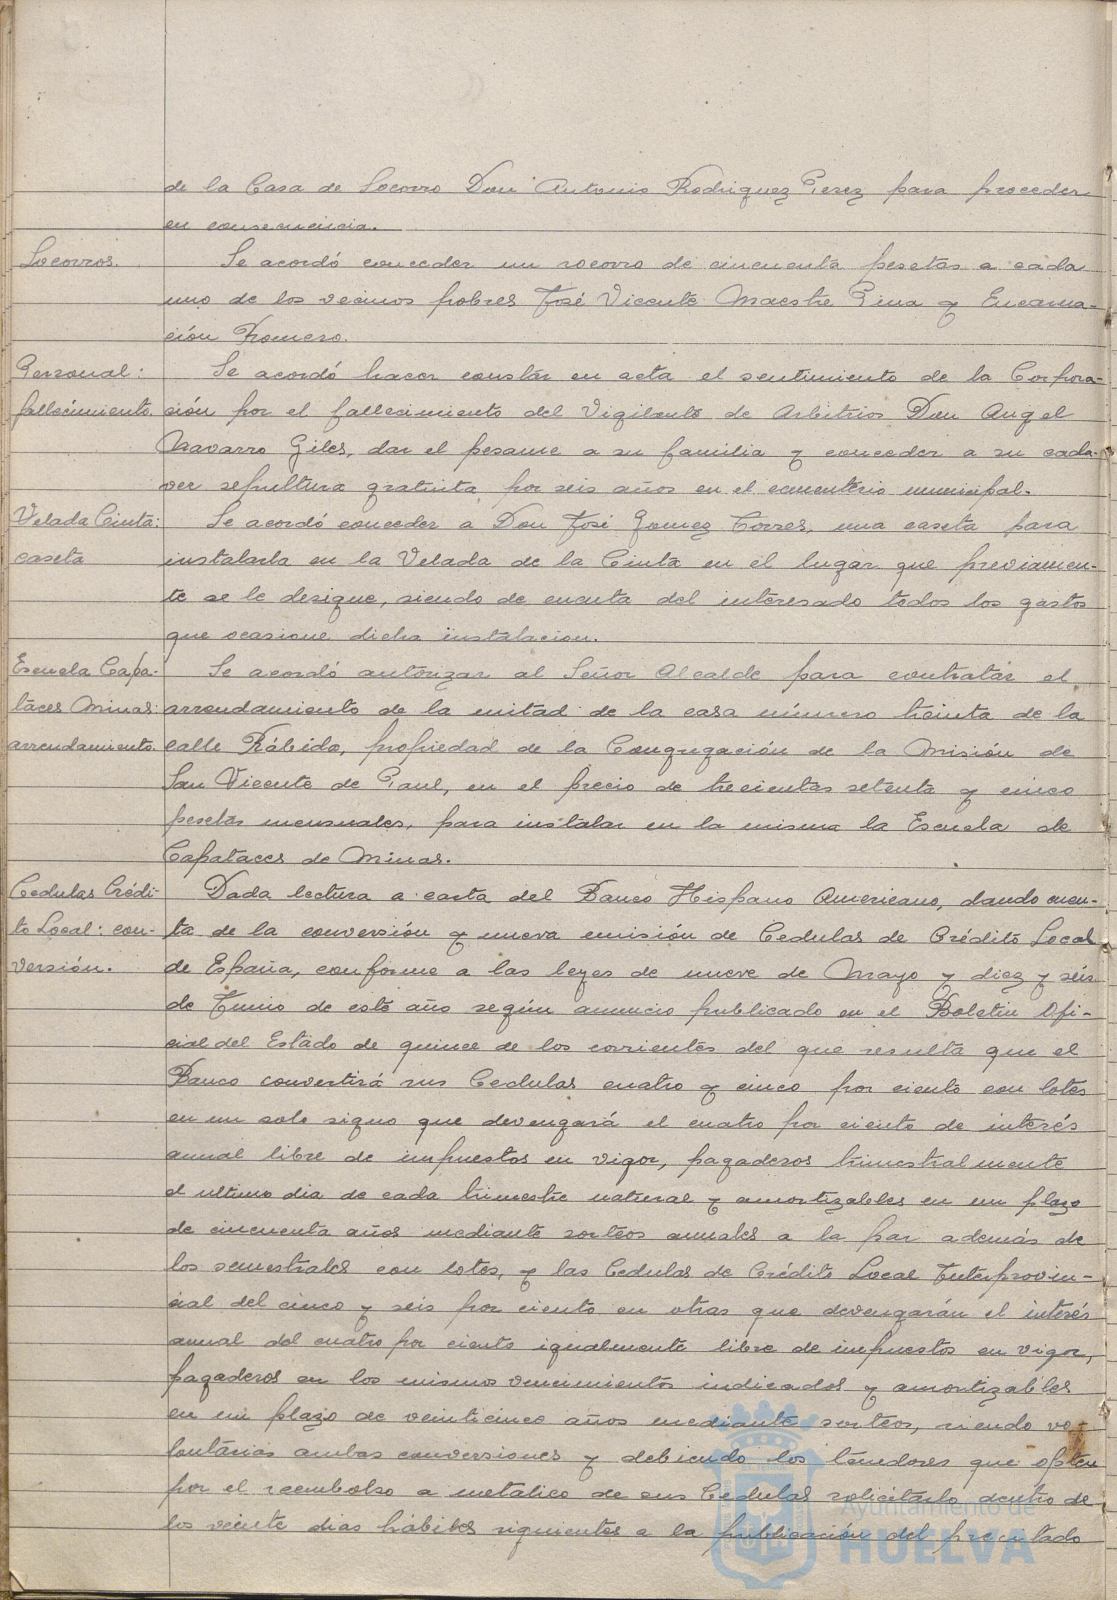 de la Casa de Socorro Don Antonio Rodriguez Perez para proceder
en consecuencia.
Socorros.
Se acordó conceder un socorro de cincuenta pesetas a cada
uno de los vecinos pobres José Vicente Maestre Pina y Encarna-
ción Romero.
Personal:
fallecimiento.
Se acordó hacer constár en acta el sentimiento de la Corpora-
ción por el fallecimiento del Vigilante de Arbitrios Don Angel
Navarro Giles, dar el pesame a su familia y conceder a su cada-
ver sepultura gratuita por seis años en el cementerio municipal.
Velada Cinta:
caseta
Se acordó conceder a Don José Gomez Torres, una caseta para
instalarla en la Velada de la Cinta en el lugar que previamen-
te se le desigue, siendo de cuenta del interesado todos los gastos
que ocasione dicha instalacion.
Escuela Capa-
taces Minas:
arrendamiento.
Se acordó autorizar al Señor Alcalde para contratár el
arrendamiento de la mitad de la casa número treinta de la
calle Rábida, propiedad de la Congregación de la Misión de
San Vicente de Paul, en el precio de trecientas setenta y cinco
pesetas mensuales, para instalar en la misma la Escuela de
Capataces de Minas.
Cedulas Crédi-
to Local: con-
versión.
Dada lectura a carta del Banco Hispano Americano, dando cuen-
ta de la conversión y nueva emisión de Cedulas de Crédito Local
de España, conforme a las leyes de nueve de Mayo y diez y seis
de Junio de este año según anuncio publicado en el Boletin Ofi-
cial del Estado de quince de los corrientes del que resulta que el
Banco convertirá sus Cedulas cuatro y cinco por ciento con lotes
en un solo signo que devengará el cuatro por ciento de interés
anual libre de impuestos en vigor, pagaderos trimestralmente
el ultimo dia de cada trimestre natural y amortizables en un plazo
de cincuenta años mediante sorteos anuales a la par además de
los semestrales con lotes, y las Cedulas de Crédito Local Interprovin-
cial del cinco y seis por ciento en otras que devengarán el interés
anual del cuatro por ciento igualmente libre de impuestos en vigor,
pagaderos en los mismos vencimientos indicados y amortizables
en un plazo de veinticinco años mediante sorteos, siendo vo-
luntarias ambas conversiones y debiendo los tenedores que opten
por el reembolso a metalico de sus Cedulas solicitarlo dentro de
los veinte dias hábiles siguientes a la publicación del precitado
Ayuntamiento de
HUELVA